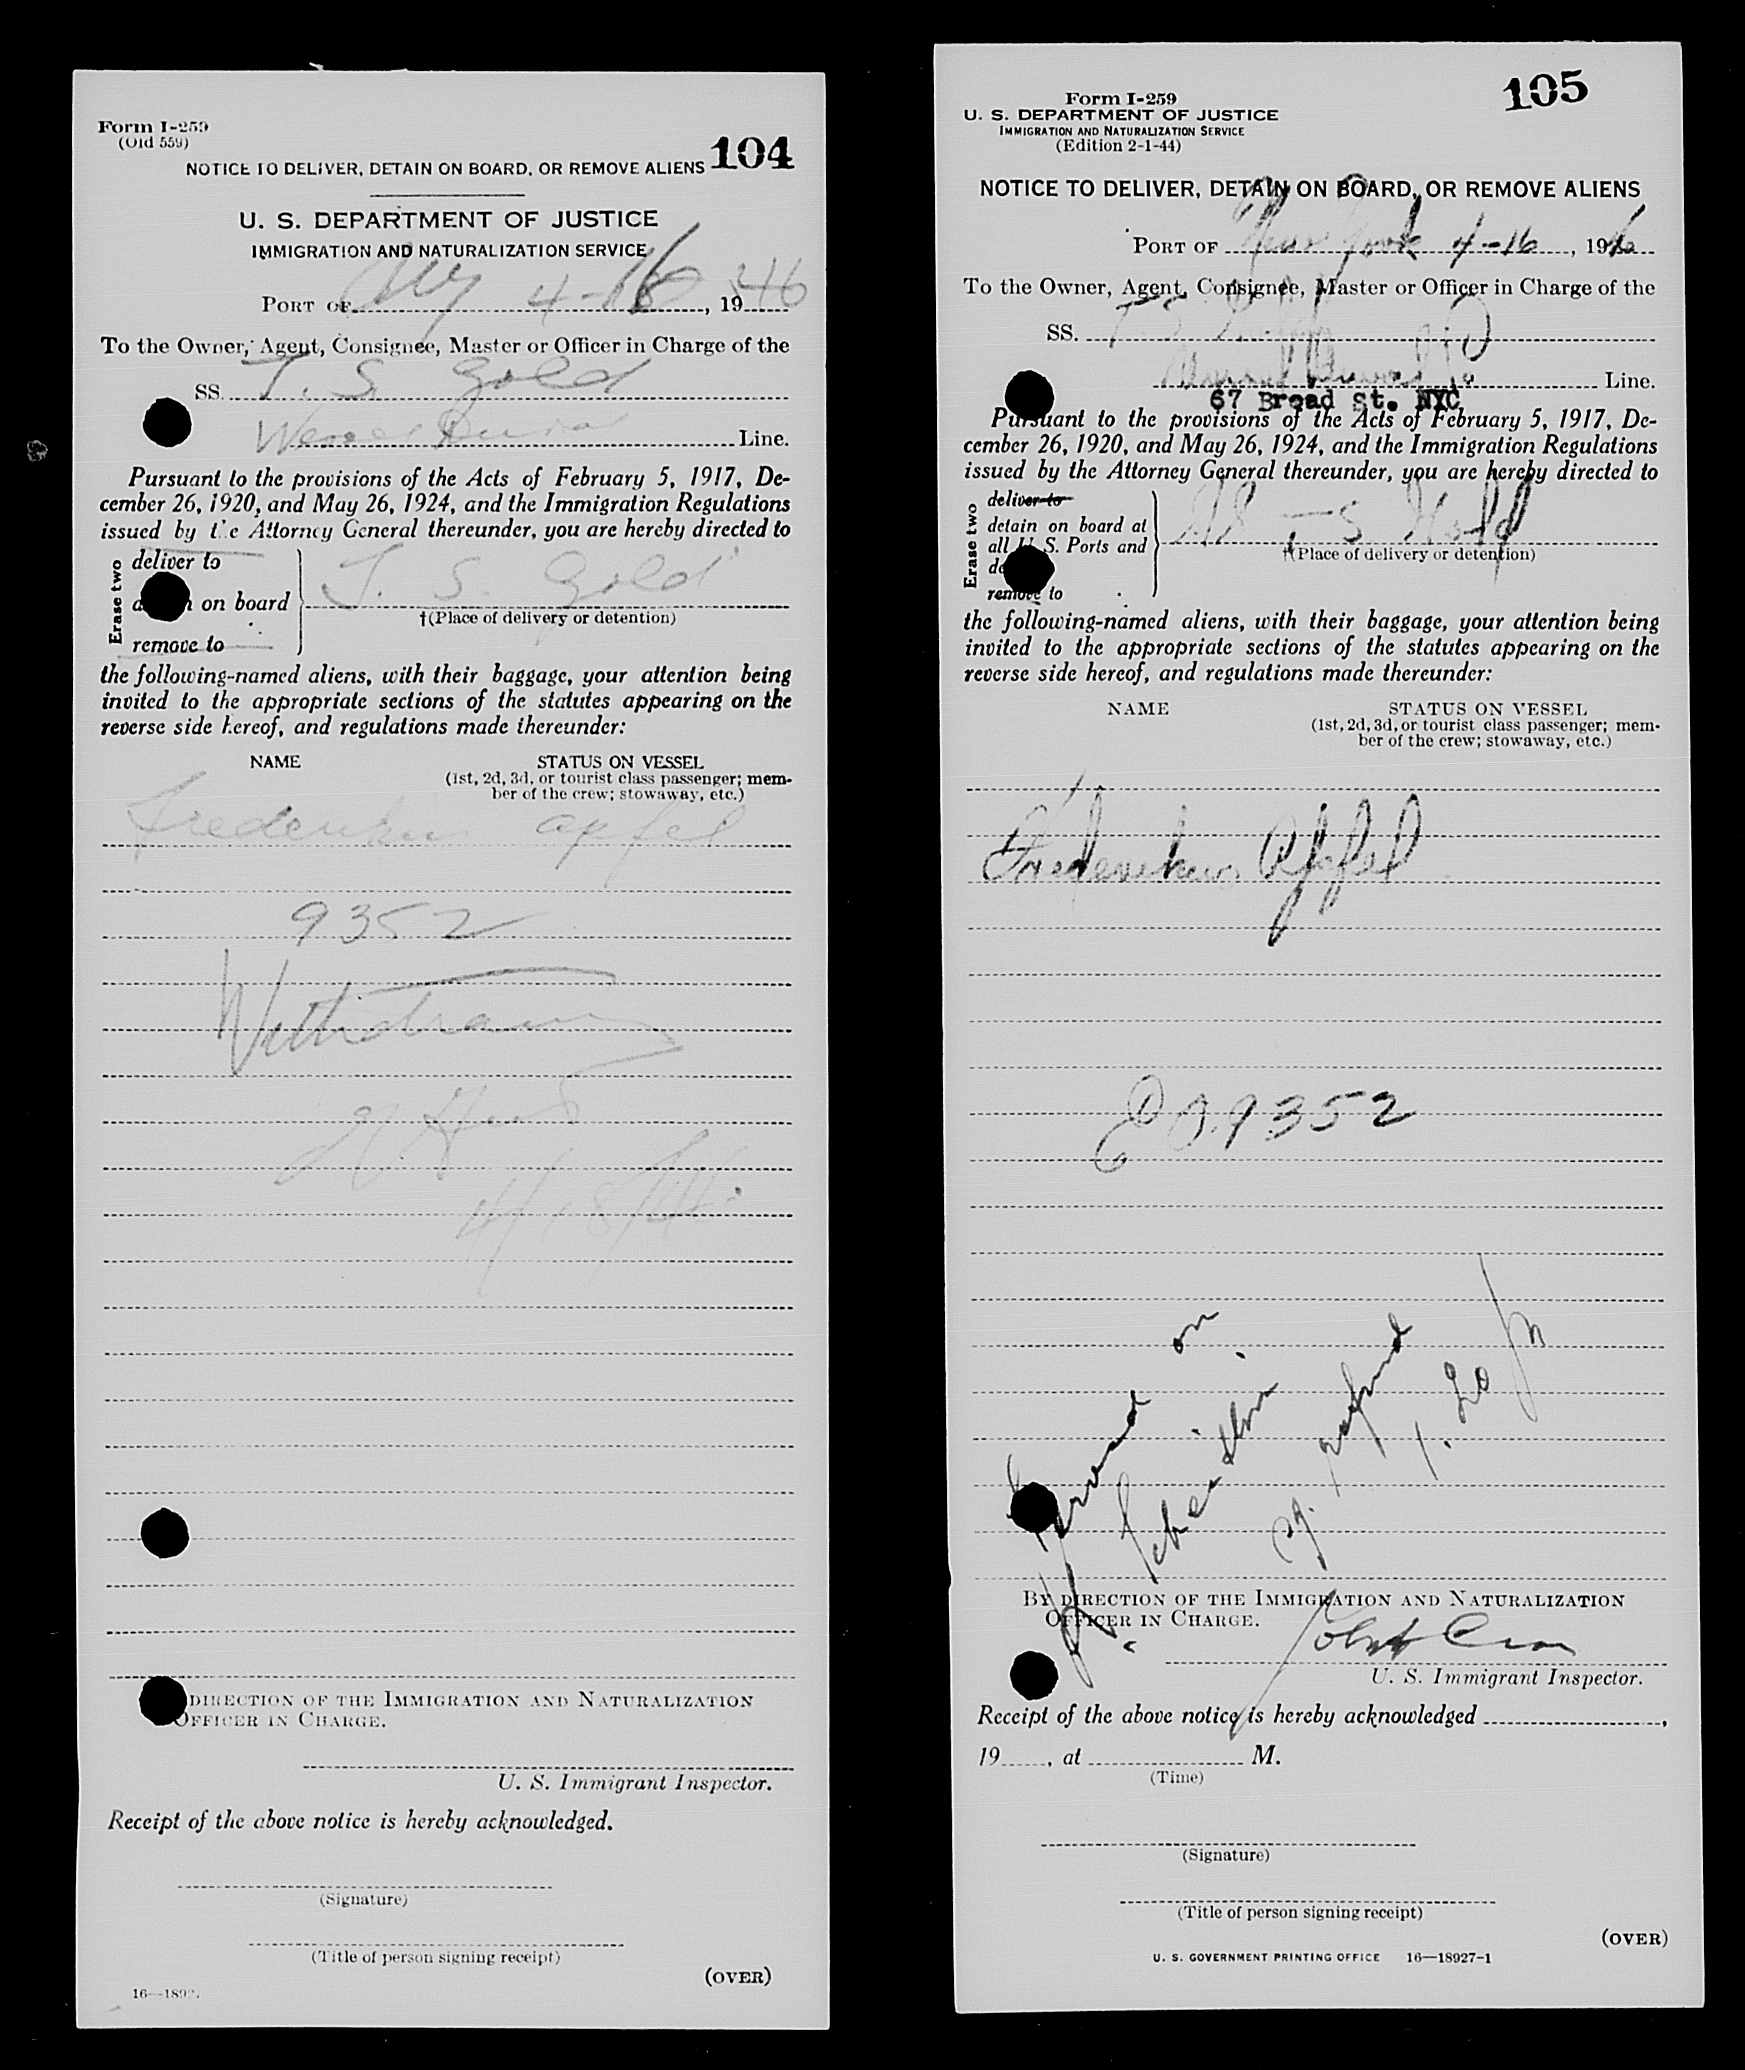 Form I-259
(Old 559)
104
NOTICE TO DELIVER, DETAIN ON BOARD, OR REMOVE ALIENS
U. S. DEPARTMENT OF JUSTICE
IMMIGRATION AND NATURALIZATION SERVICE
PORT OF NY 4-16, 1946
To the Owner, Agent, Consignee, Master or Officer in Charge of the
SS. T. S. Gold
Line.
Pursuant to the provisions of the Acts of February 5, 1917, De-
cember 26, 1920, and May 26, 1924, and the Immigration Regulations
issued by the Attorney General thereunder, you are hereby directed to
Erase two
deliver to
on board T. S. Gold
†(Place of delivery or detention)
remove to
the following-named aliens, with their baggage, your attention being
invited to the appropriate sections of the statutes appearing on the
reverse side hereof, and regulations made thereunder:
NAME STATUS ON VESSEL
(1st, 2d, 3d, or tourist class passenger; mem-
ber of the crew; stowaway, etc.)
Frederikus Apfel
9352
Withdrawn
4/18/46
DIRECTION OF THE IMMIGRATION AND NATURALIZATION
OFFICER IN CHARGE.
U. S. Immigrant Inspector.
Receipt of the above notice is hereby acknowledged.
(Signature)
(Title of person signing receipt)
(OVER)
16—1892
Form I-259
105
U. S. DEPARTMENT OF JUSTICE
IMMIGRATION AND NATURALIZATION SERVICE
(Edition 2-1-44)
NOTICE TO DELIVER, DETAIN ON BOARD, OR REMOVE ALIENS
PORT OF New York 4-16, 1946
To the Owner, Agent, Consignee, Master or Officer in Charge of the
SS. T S Gold
Line.
67 Broad St. NYC
Pursuant to the provisions of the Acts of February 5, 1917, De-
cember 26, 1920, and May 26, 1924, and the Immigration Regulations
issued by the Attorney General thereunder, you are hereby directed to
Erase two
deliver to
detain on board at
all U. S. Ports and SS T S Gold
†(Place of delivery or detention)
remove to
the following-named aliens, with their baggage, your attention being
invited to the appropriate sections of the statutes appearing on the
reverse side hereof, and regulations made thereunder:
NAME STATUS ON VESSEL
(1st, 2d, 3d, or tourist class passenger; mem-
ber of the crew; stowaway, etc.)
Frederikus Apfel
9352
Served on
1.20 PM
BY DIRECTION OF THE IMMIGRATION AND NATURALIZATION
OFFICER IN CHARGE.
U. S. Immigrant Inspector.
Receipt of the above notice is hereby acknowledged ,
19 , at M.
(Time)
(Signature)
(Title of person signing receipt)
(OVER)
U. S. GOVERNMENT PRINTING OFFICE 16—18927-1